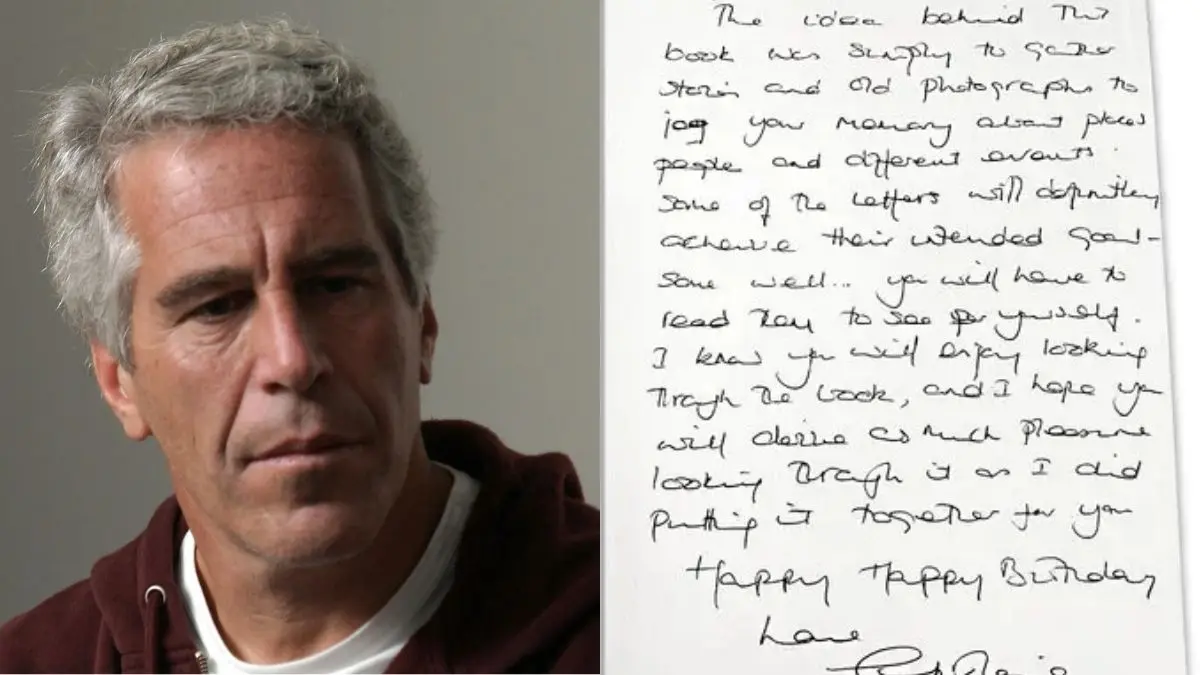 The idea behind this
book was simply to gather
stories and old photographs to
jog your memory about places
people and different events.
some of the letters will definitely
achieve their intended goal-
some well... you will have to
read them to see for yourself.
I know you will enjoy looking
through the book, and I hope you
will derive as much pleasure
looking through it as I did
putting it together for you
Happy Happy Birthday
Love